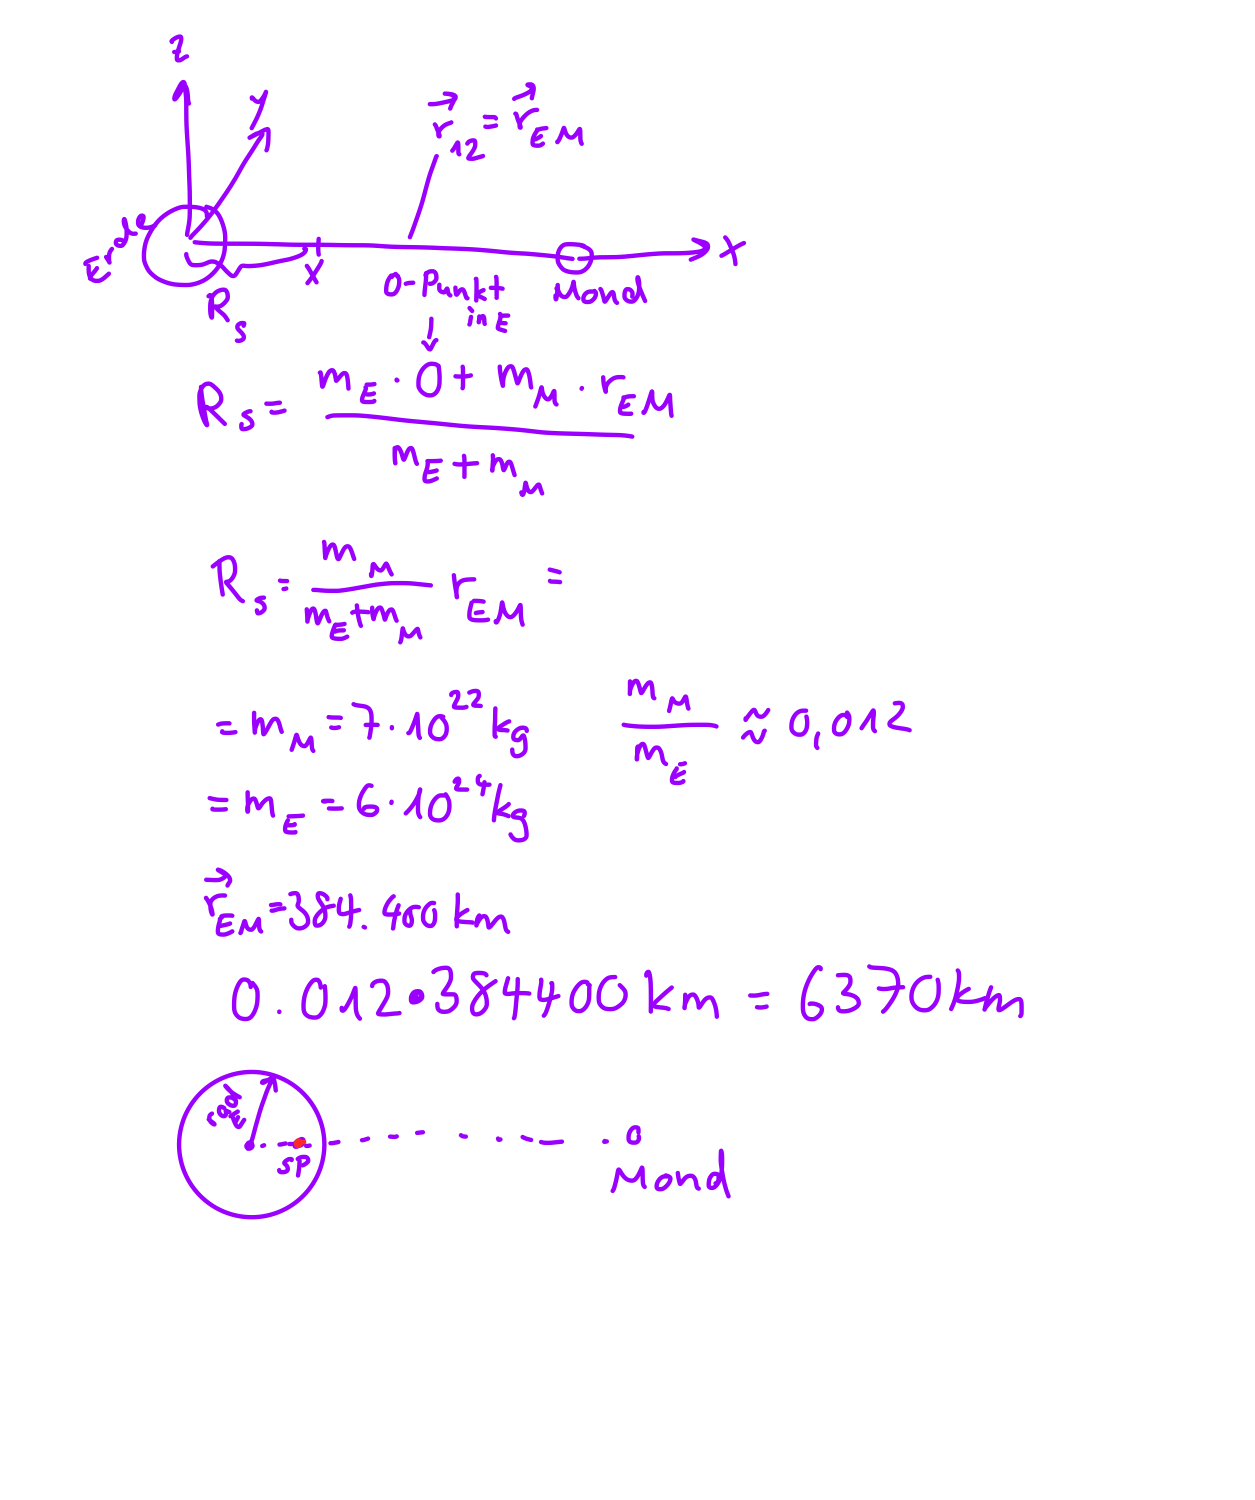 z
y
r₁₂ = r_EM
Erde
x
x
R_s
0-Punkt
in E
Mond
R_s = (m_E · 0 + m_M · r_EM) / (m_E + m_M)
R_s = m_M / (m_E + m_M) r_EM =
= m_M = 7 · 10²² kg
m_M / m_E ≈ 0,012
= m_E = 6 · 10²⁴ kg
r_EM = 384.400 km
0.012 • 384400 km = 6370 km
rad_E
SP
Mond